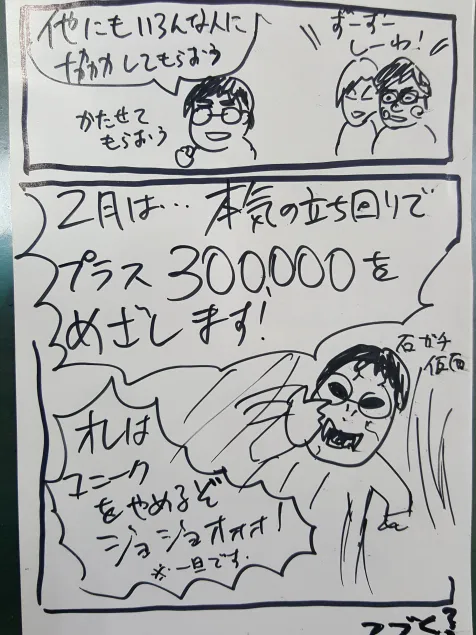 他にもいろんな人に
協力してもらおう
かたせて
もらおう
ずーずー
しーわ!
2月は… 本気の立ち回りで
プラス300,000を
めざします!
石ガチ
仮面
オレは
ユニーク
をやめるぞ
ジョジョオォォ!
※一旦です.
つづく?